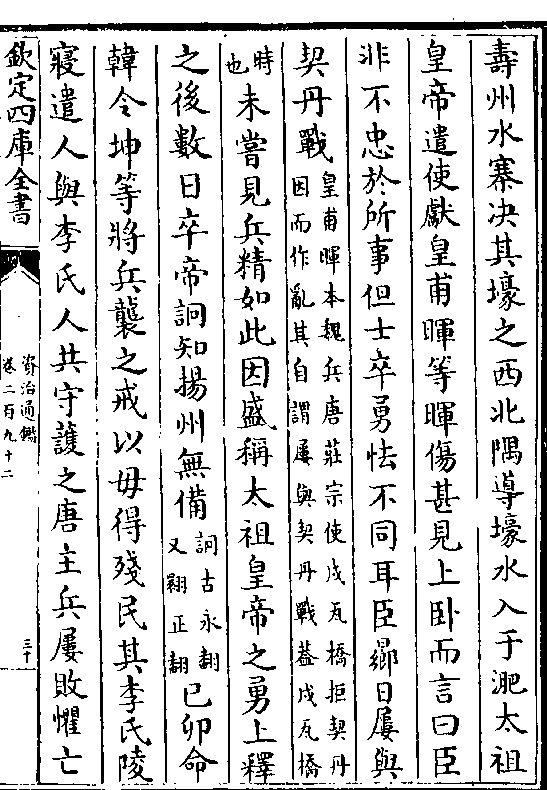 壽州水寨決其壕之西北隅導壕水入于淝太祖
皇帝遣使獻皇甫暉等暉傷甚見上卧而言曰臣
非不忠於所事但士卒勇怯不同耳臣曏日屢與
契丹戰皇甫暉本魏兵唐莊宗使戍瓦橋拒契丹
因而作亂其自謂屢與契丹戰蓋戍瓦橋
時
也未嘗見兵精如此因盛稱太祖皇帝之勇上釋
之後數日卒帝詗知揚州無備詗古永翻
又翾正翻已卯命
韓令坤等將兵襲之戒以毋得殘民其李氏陵
寢遣人與李氏人共守護之唐主兵屢敗懼亡
欽定四庫全書
資治通鑑
卷二百九十二
三十